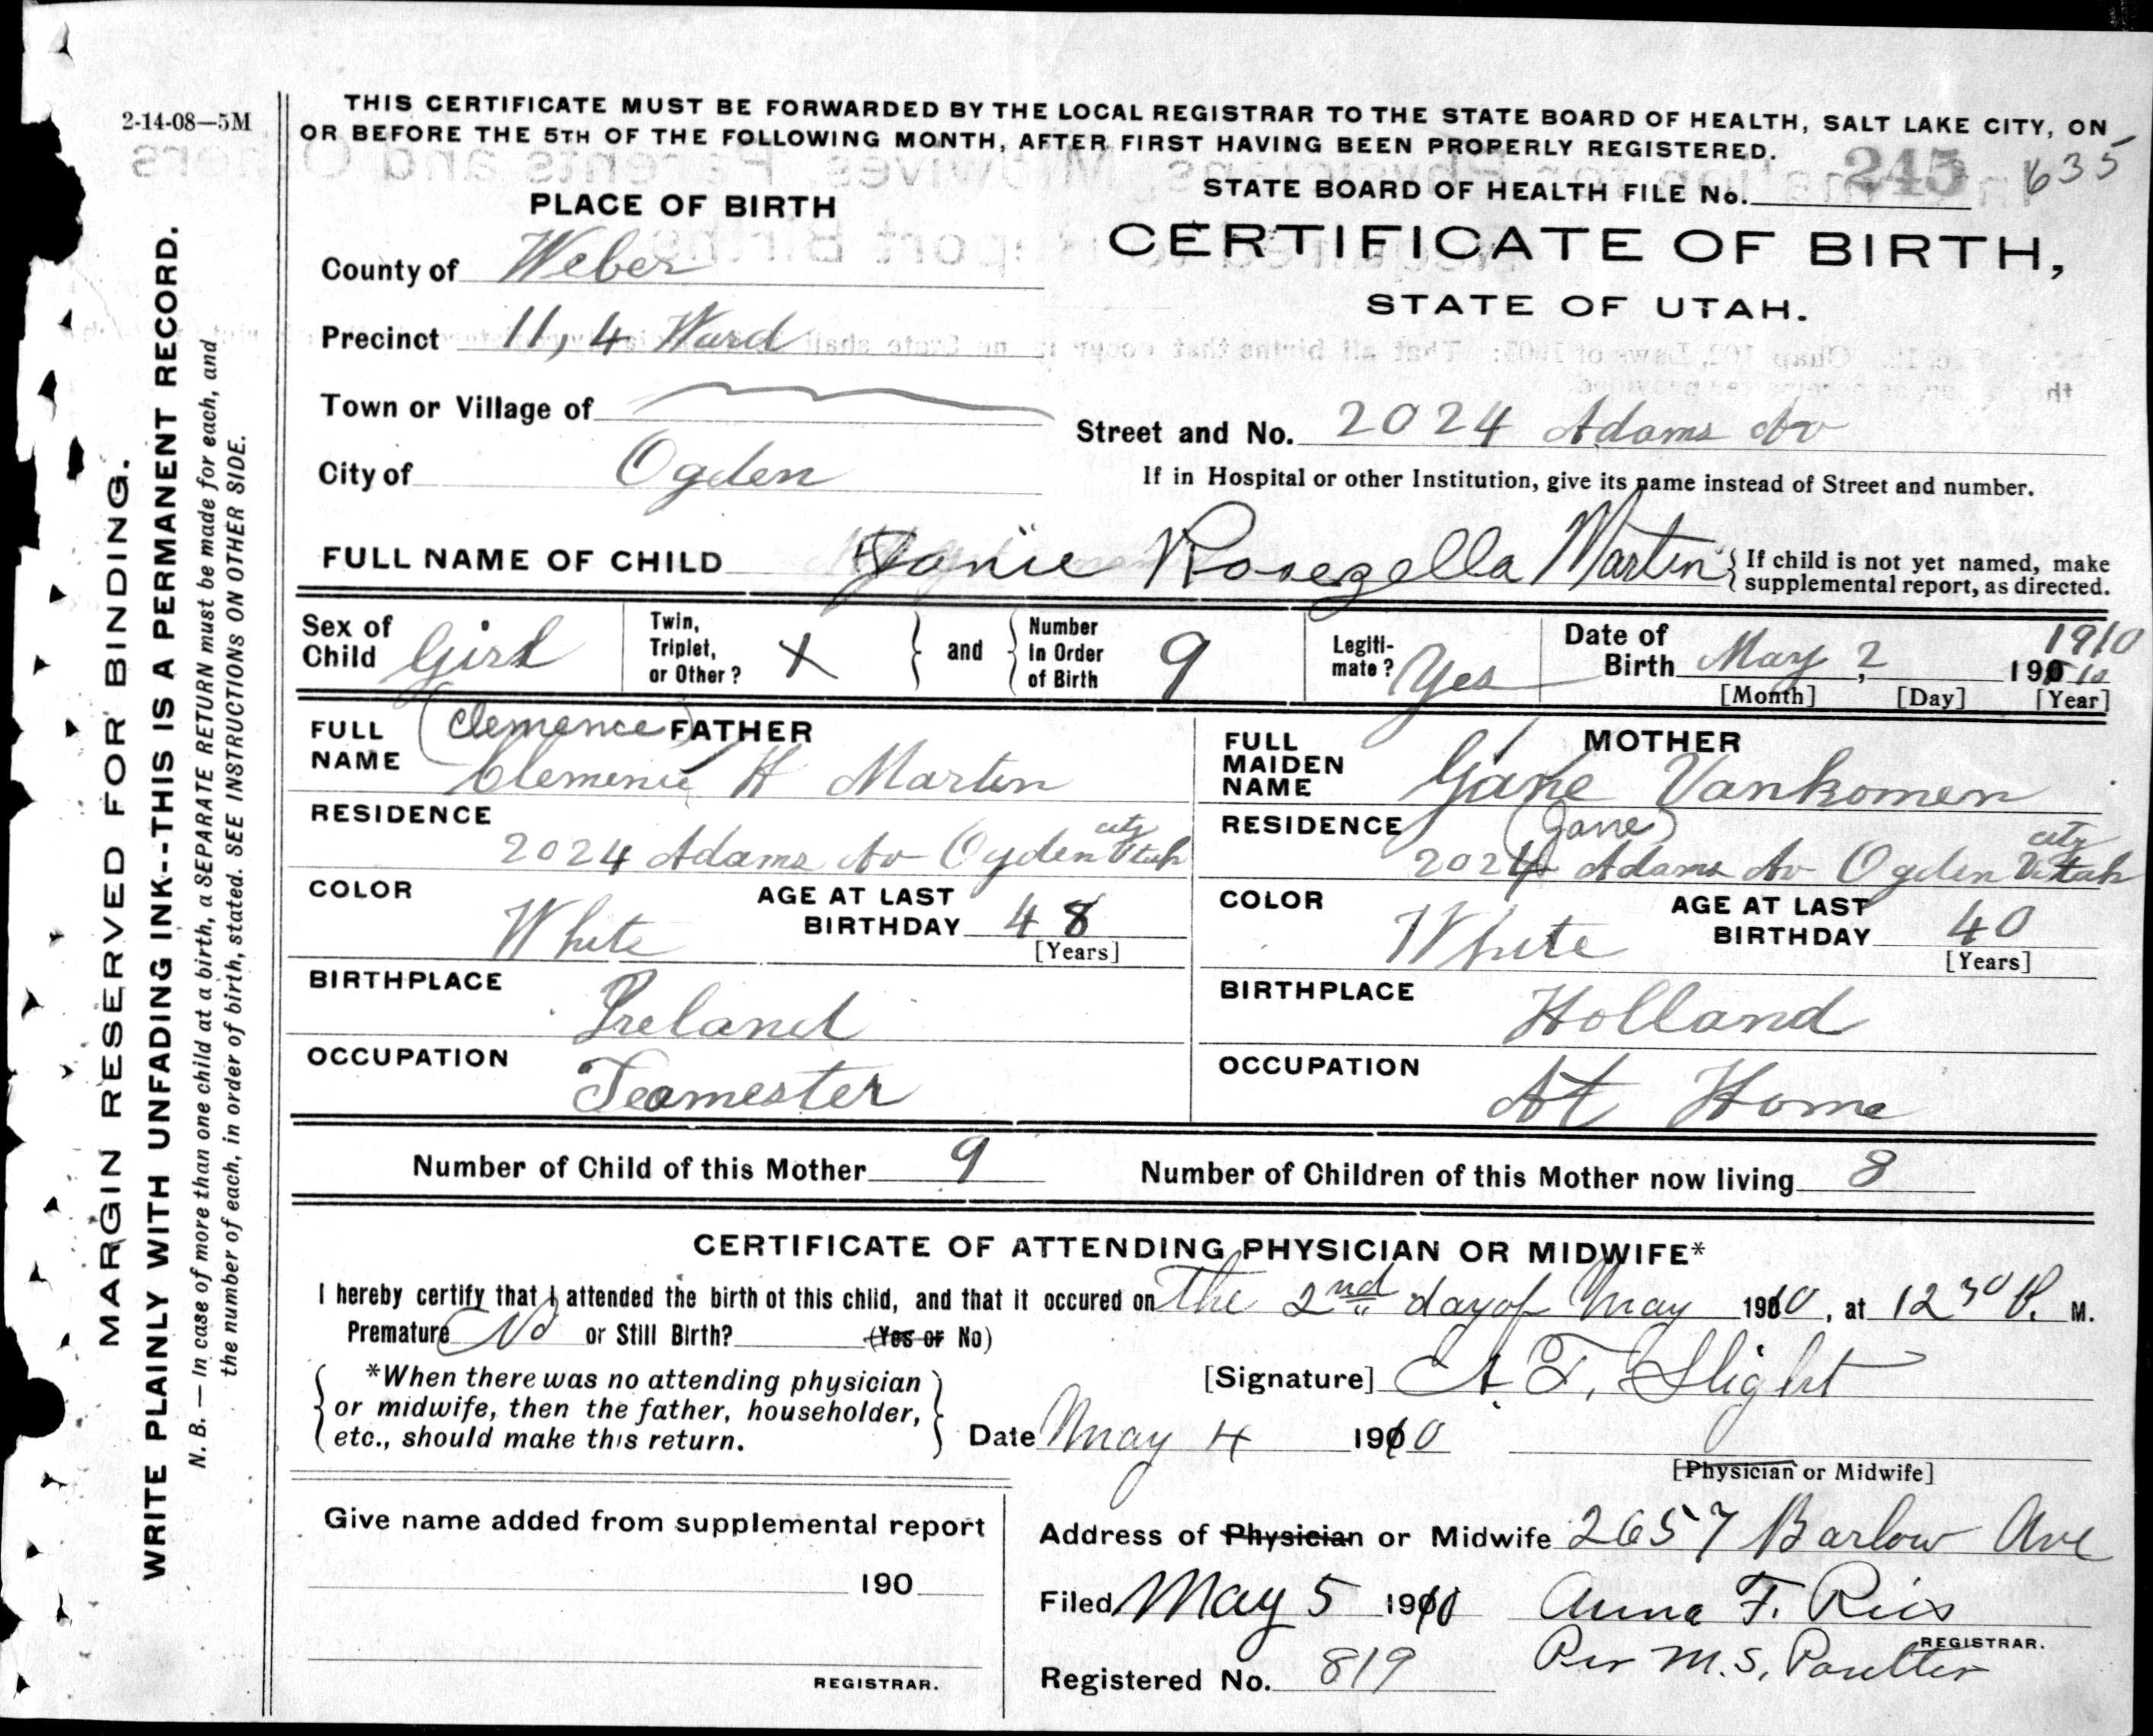 2-14-08—5M
THIS CERTIFICATE MUST BE FORWARDED BY THE LOCAL REGISTRAR TO THE STATE BOARD OF HEALTH, SALT LAKE CITY, ON
OR BEFORE THE 5TH OF THE FOLLOWING MONTH, AFTER FIRST HAVING BEEN PROPERLY REGISTERED.
245 635
STATE BOARD OF HEALTH FILE No.
PLACE OF BIRTH
CERTIFICATE OF BIRTH,
STATE OF UTAH.
County of Weber
Precinct 11, 4 Ward
Town or Village of
Street and No. 2024 Adams Av
City of Ogden
If in Hospital or other Institution, give its name instead of Street and number.
FULL NAME OF CHILD Janie Rosezella Martin
If child is not yet named, make
supplemental report, as directed.
Sex of Child Girl
Twin, Triplet, or Other? X
and
Number In Order of Birth 9
Legiti-mate? Yes
Date of Birth May 2, 190 10 1910
[Month] [Day] [Year]
FATHER
FULL NAME (Clemence) Clemence H Martin
RESIDENCE
2024 Adams Av Ogden city Utah
COLOR White
AGE AT LAST BIRTHDAY 48
[Years]
BIRTHPLACE
Ireland
OCCUPATION
Teamester
MOTHER
FULL MAIDEN NAME Jane Vankomen
(Jane)
RESIDENCE
2024 Adams Av Ogden city Utah
COLOR White
AGE AT LAST BIRTHDAY 40
[Years]
BIRTHPLACE
Holland
OCCUPATION
At Home
Number of Child of this Mother 9
Number of Children of this Mother now living 8
CERTIFICATE OF ATTENDING PHYSICIAN OR MIDWIFE*
I hereby certify that I attended the birth of this child, and that it occured on The 2nd day of May 1910, at 12 30 P. M.
Premature No or Still Birth? (Yes or No)
*When there was no attending physician
or midwife, then the father, householder,
etc., should make this return.
[Signature] A. T. Slight
Date May 4 1910
[Physician or Midwife]
Give name added from supplemental report
190
REGISTRAR.
Address of Physician or Midwife 2657 Barlow Ave
Filed May 5 1910 Anna F. Ries
REGISTRAR.
Per M. S. Poulter
Registered No. 819
MARGIN RESERVED FOR BINDING.
WRITE PLAINLY WITH UNFADING INK--THIS IS A PERMANENT RECORD.
N. B. — In case of more than one child at a birth, a SEPARATE RETURN must be made for each, and
the number of each, in order of birth, stated. SEE INSTRUCTIONS ON OTHER SIDE.